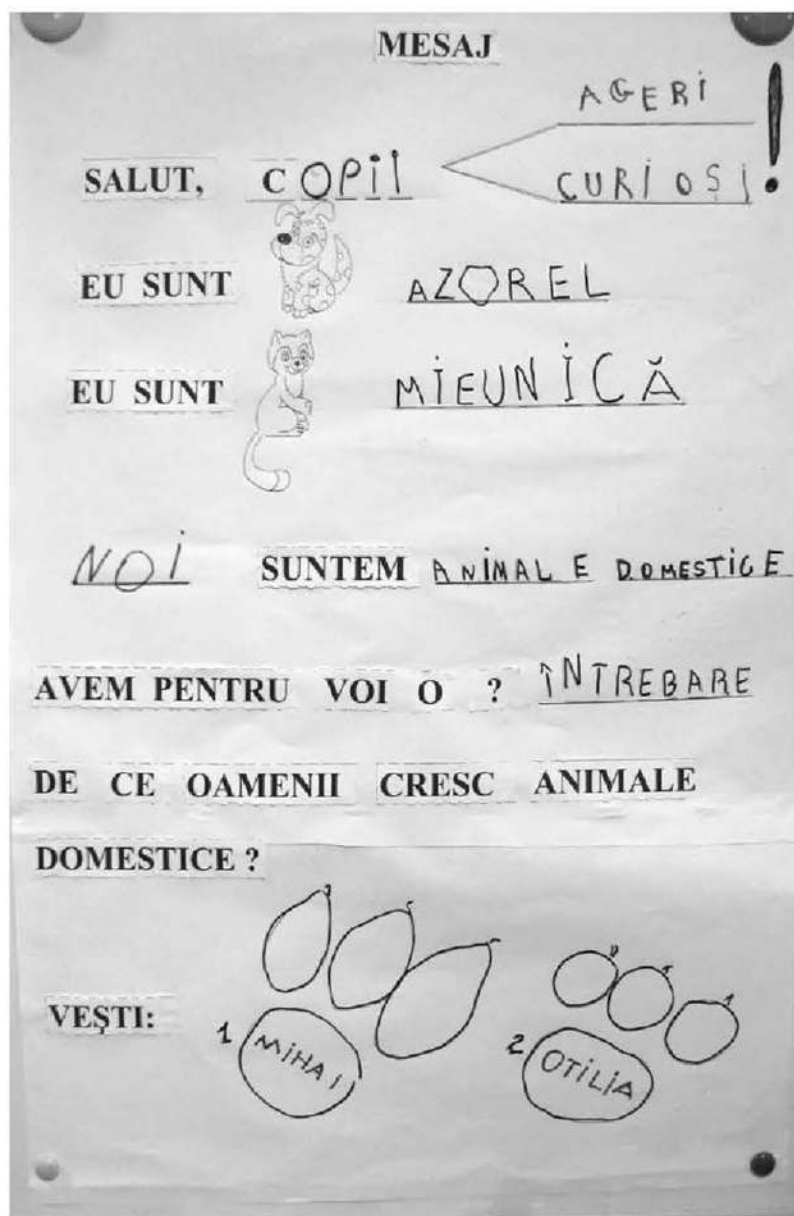 MESAJ
AGERI
SALUT, COPII CURIOȘI!
EU SUNT AZOREL
EU SUNT MIEUNICĂ
NOI SUNTEM ANIMALE DOMESTICE
AVEM PENTRU VOI O ? ÎNTREBARE
DE CE OAMENII CRESC ANIMALE
DOMESTICE ?
VEȘTI: 1 MIHAI 2 OTILIA